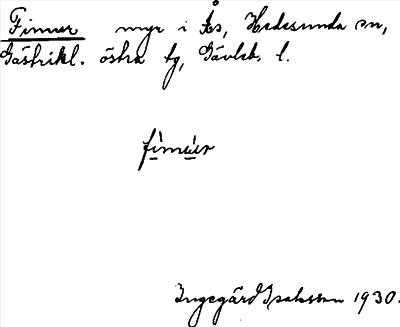 Finnur myr i Ås, Hedesunda sn,
Gästrikl. östra tg, Gävleb. l.
Ingegärd Isaksson 1930.